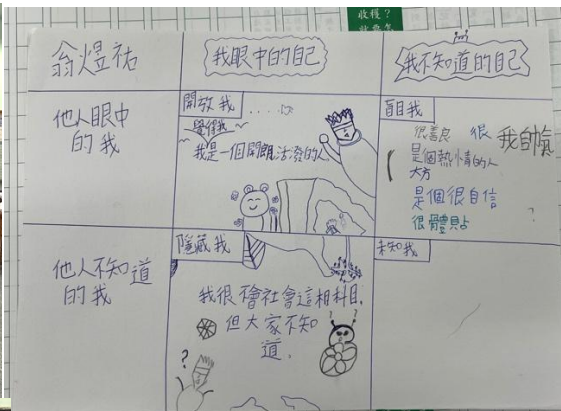 收穫？
翁煜祐
我眼中的自己
我不知道的自己
他人眼中
的我
開放我
覺得我
我是一個開朗活潑的人
盲目我
很善良 很 我自帥氣
是個熱情的人
大方
是個很自信
很體貼
?
他人不知道
的我
隱藏我
我很不會社會這相科目,
但大家不知
道.
?
? ?
未知我